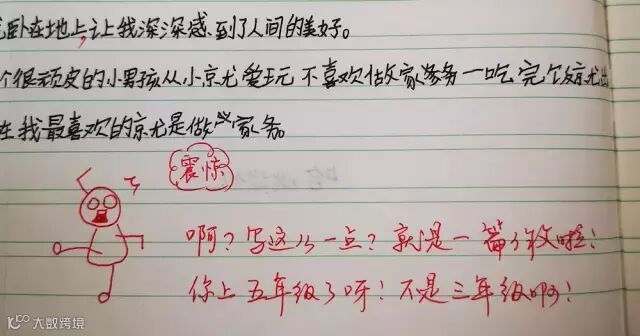 卧在地上,让我深深感到了人间的美好。
个很顽皮的小男孩从小京尤爱玩 不喜欢做家务 一吃完饭京尤出
在我最喜欢的京尤是做家务。
震惊
啊?写这么一点?就是一篇作文啦!
你上五年级了呀!不是三年级啊!
大数跨境